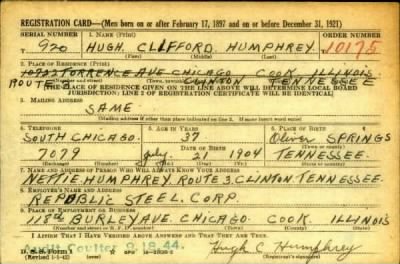 REGISTRATION CARD—(Men born on or after February 17, 1897 and on or before December 31, 1921)
SERIAL NUMBER 1. NAME (Print) ORDER NUMBER
T 920 HUGH CLIFFORD HUMPHREY 10175
(First) (Middle) (Last)
2. PLACE OF RESIDENCE (Print)
10922 TORRENCE AVE CHICAGO COOK ILLINOIS
ROUTE 3 CLINTON TENNESSEE
[THE PLACE OF RESIDENCE GIVEN ON THE LINE ABOVE WILL DETERMINE LOCAL BOARD
JURISDICTION; LINE 2 OF REGISTRATION CERTIFICATE WILL BE IDENTICAL]
3. MAILING ADDRESS
SAME
[Mailing address if other than place indicated on line 2. If same insert word same]
4. TELEPHONE 5. AGE IN YEARS 6. PLACE OF BIRTH
SOUTH CHICAGO 37 Oliver SPRINGS
DATE OF BIRTH (Town or county)
7079 July 21 1904 TENNESSEE.
(Exchange) (Number) (Mo.) (Day) (Yr.) (State or country)
7. NAME AND ADDRESS OF PERSON WHO WILL ALWAYS KNOW YOUR ADDRESS
NETTIE HUMPHREY ROUTE 3 CLINTON TENNESSEE.
8. EMPLOYER'S NAME AND ADDRESS
REPUBLIC STEEL CORP.
9. PLACE OF EMPLOYMENT OR BUSINESS
118th BURLEY AVE. CHICAGO. COOK. ILLINOIS
I AFFIRM THAT I HAVE VERIFIED ABOVE ANSWERS AND THAT THEY ARE TRUE.
D. S. S. Form 1
(Revised 1-1-42)
Hugh C Humphrey